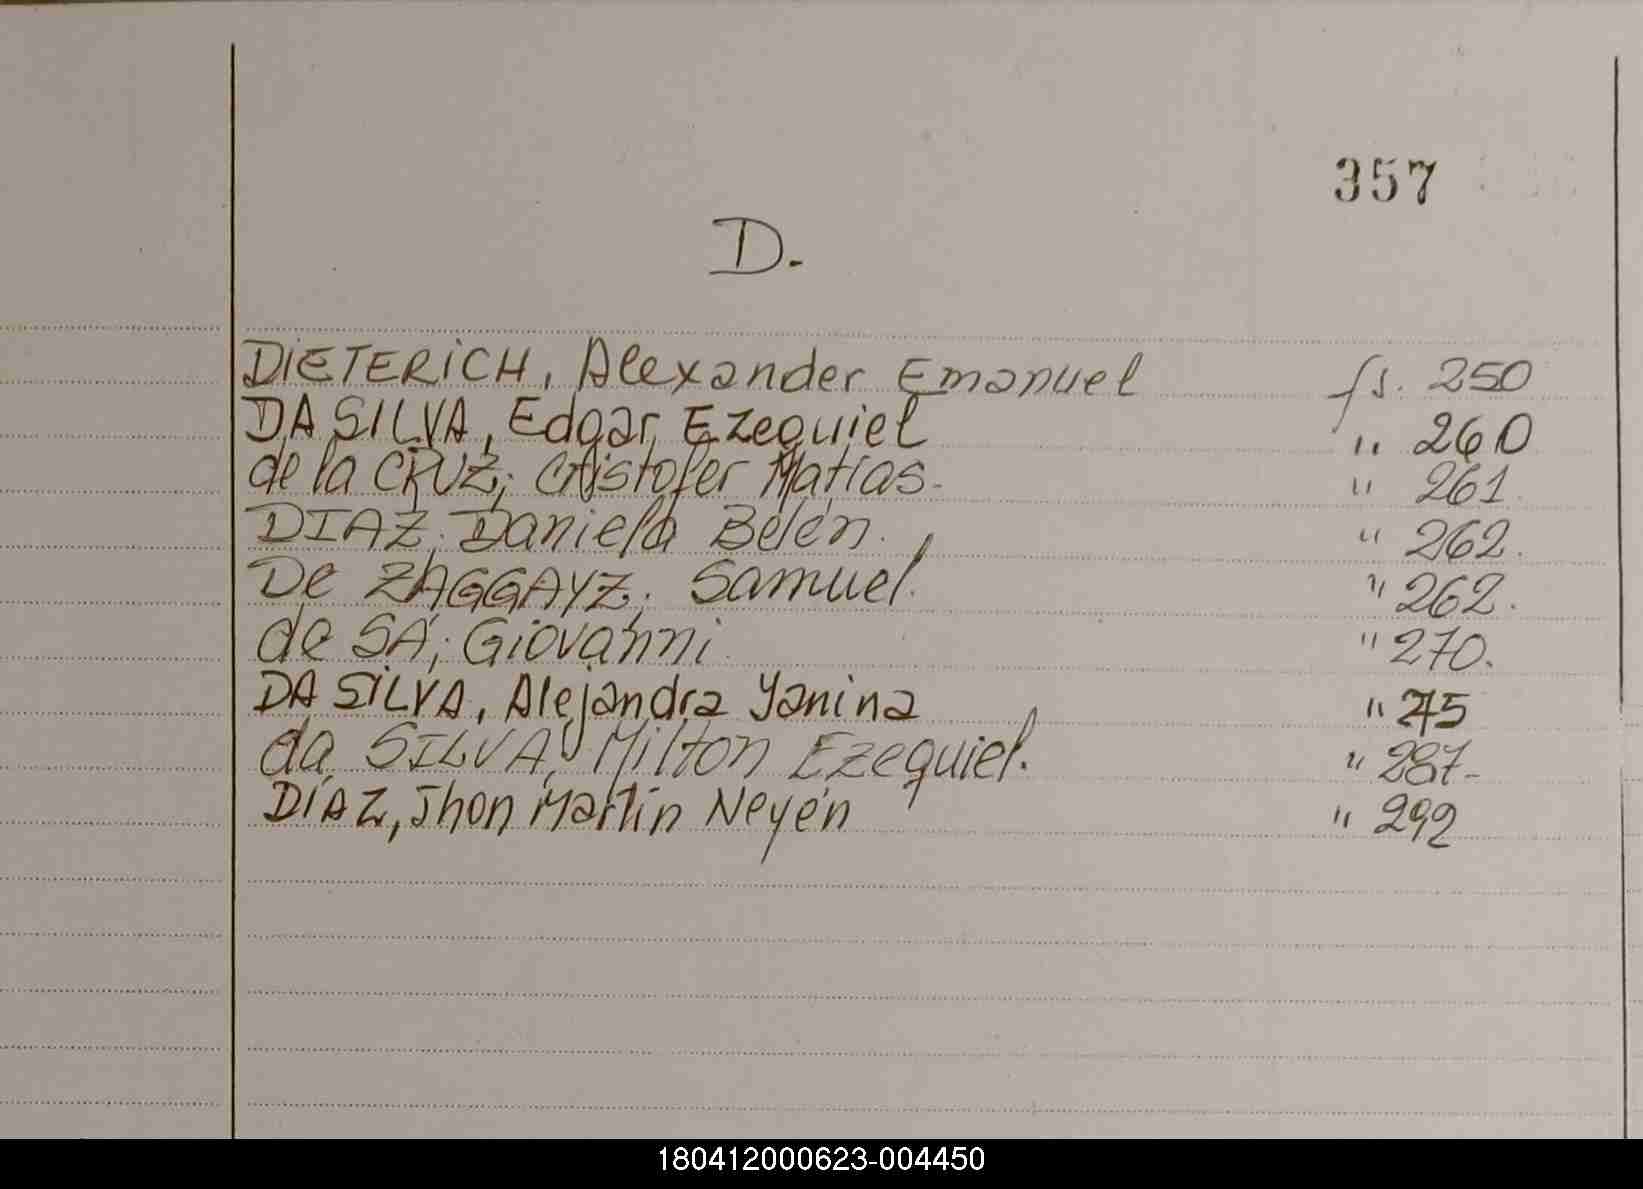 357
D.
DIETERICH, Alexander Emanuel fs. 250
DA SILVA, Edgar Ezequiel " 260
de la CRUZ; Cristofer Matías. " 261
DIAZ; Daniela Belén. " 262.
De ZAGGAYZ; Samuel. " 262.
de SÁ; Giovanni " 270.
DA SILVA, Alejandra Yanina " 275
da SILVA, Milton Ezequiel. " 287-
DÍAZ, Jhon Martín Neyén " 292
180412000623-004450